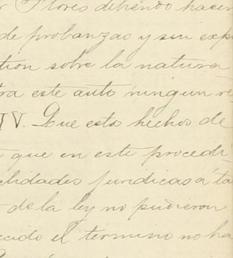 Flores debiendo hacer
de probanzas y sin exp
tion sobre la natura
tra este auto ningun re
IV. Que estos hechos de
que en este procedi
lidades juridicas a ta
de la ley no pudieron
cido el termino no ha